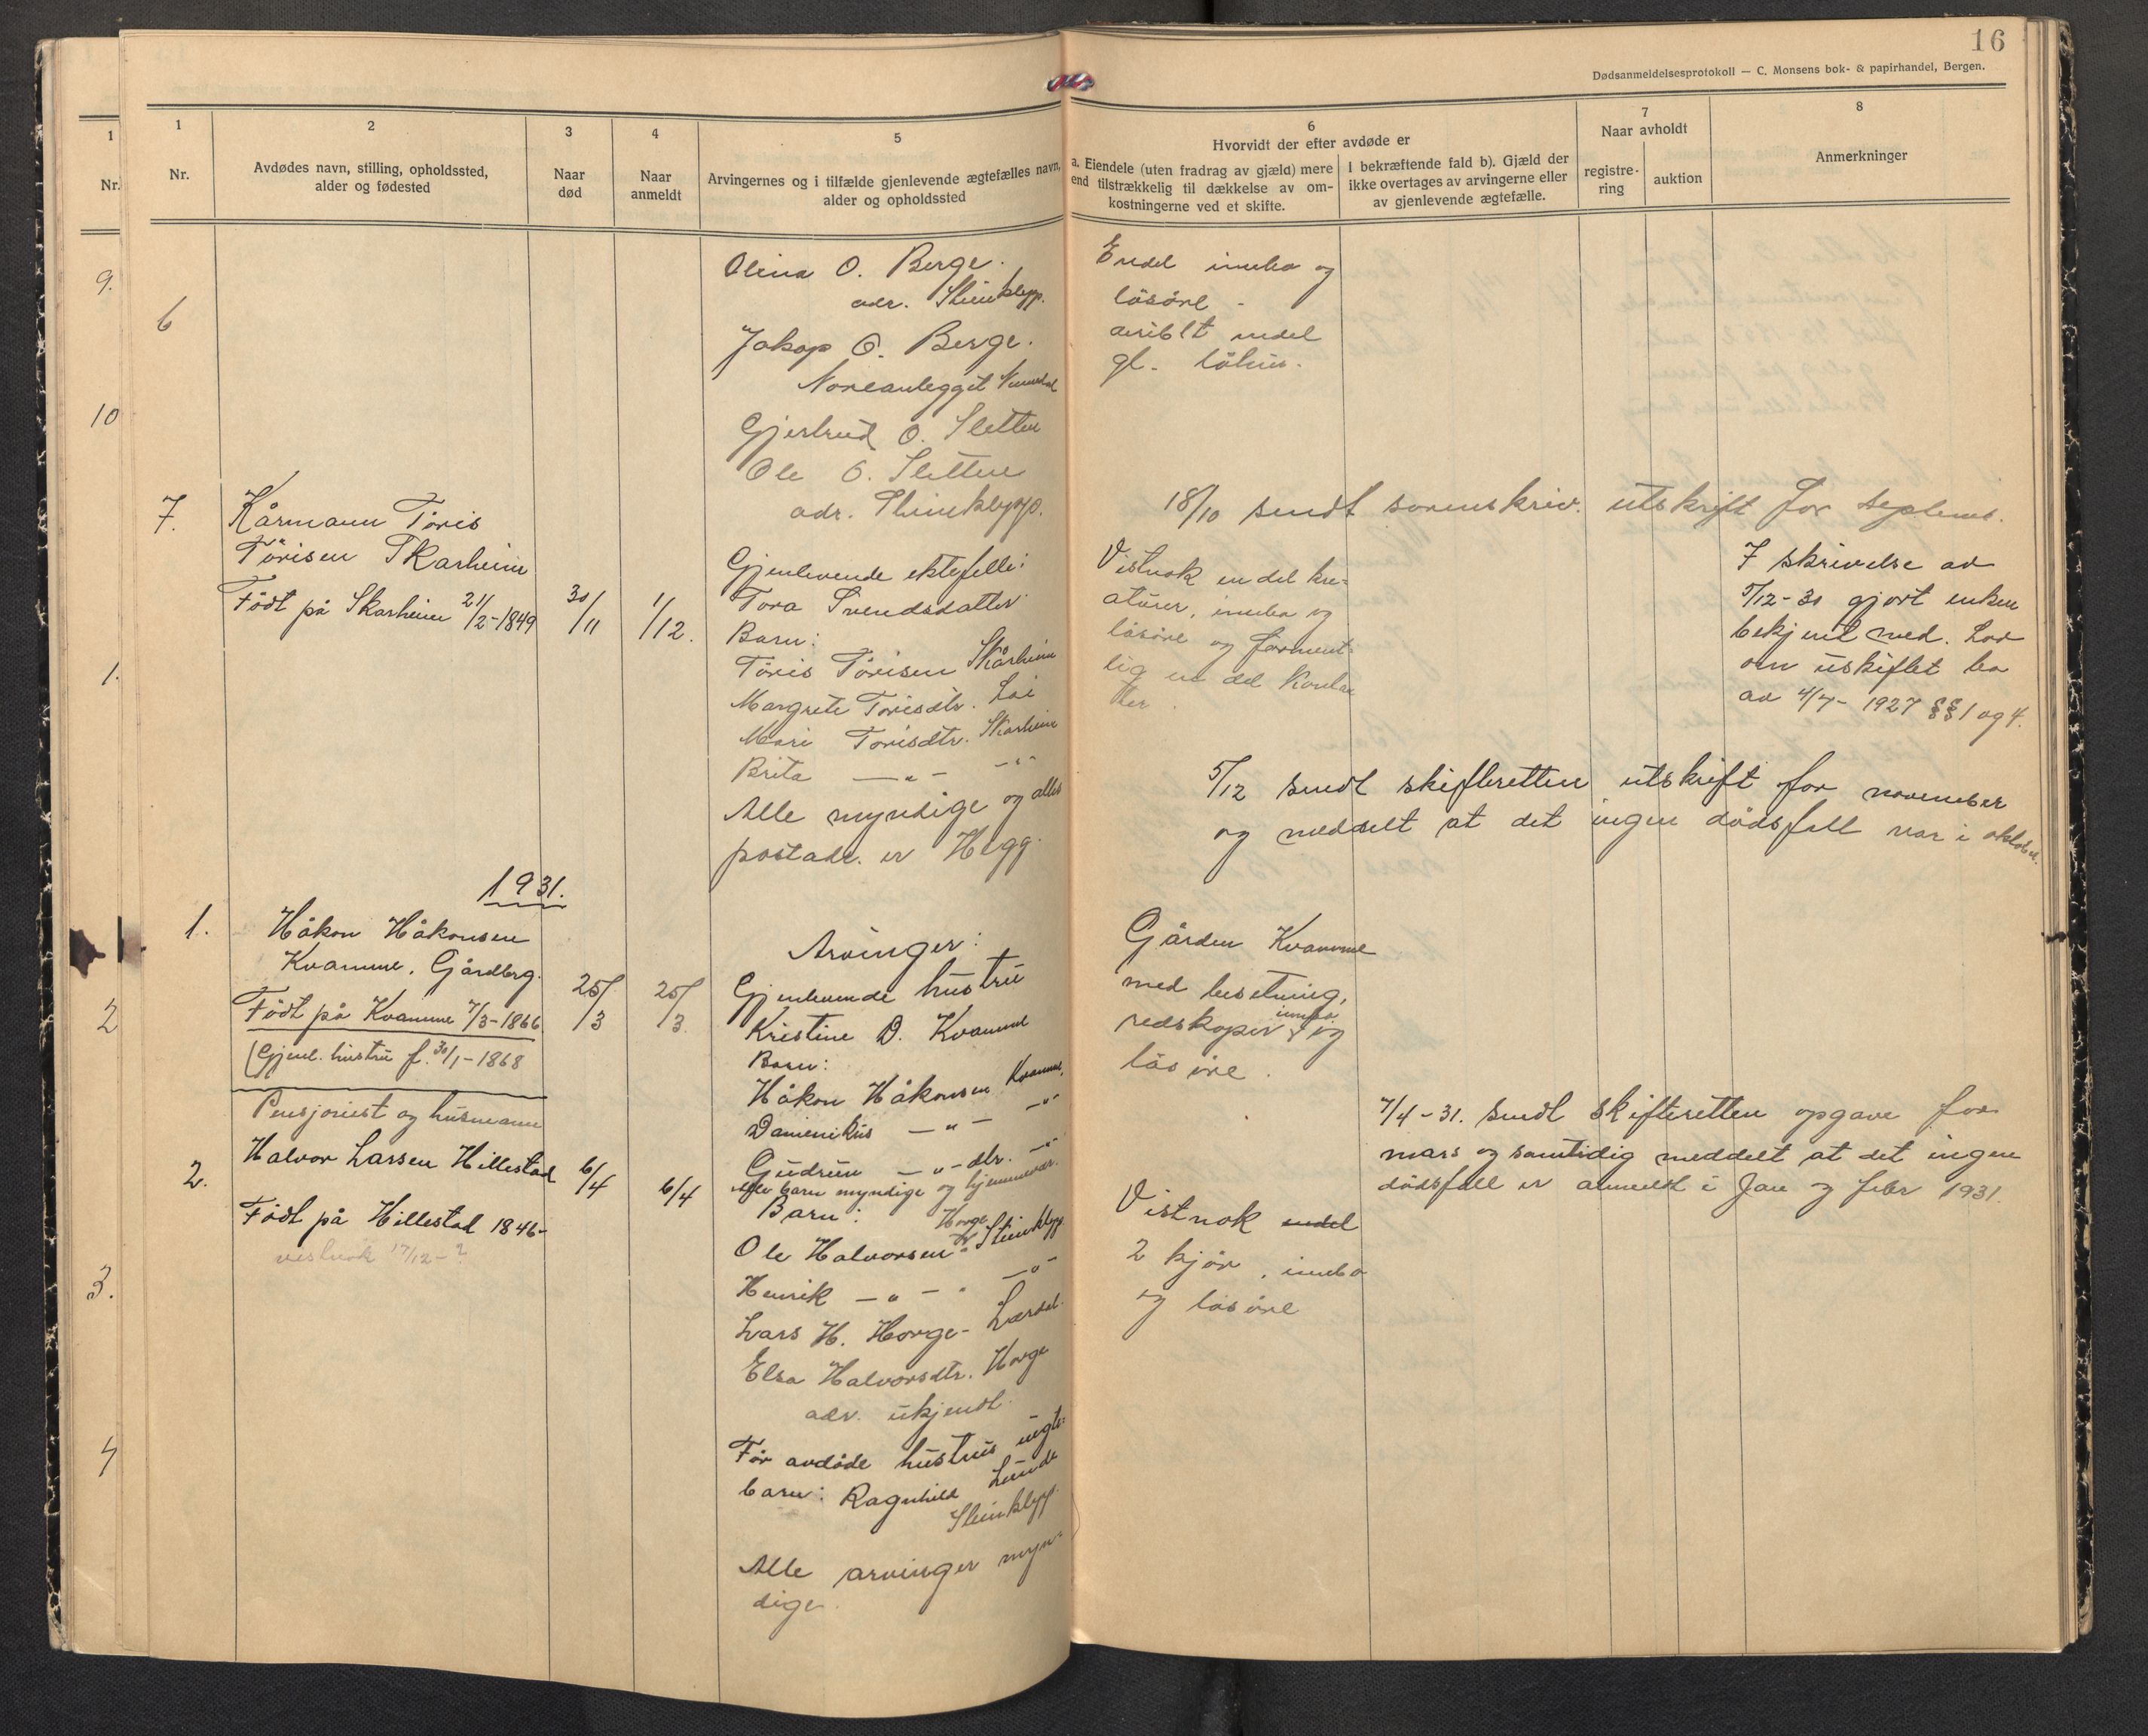 16
Dødsanmeldelsesprotokoll — C. Monsens bok- & papirhandel, Bergen.
1
Nr.
9.
10
1.
2
3.
4
1
Nr.
2
Avdødes navn, stilling, opholdssted,
alder og fødested
3
Naar
død
4
Naar
anmeldt
5
Arvingernes og i tilfælde gjenlevende ægtefælles navn,
alder og opholdssted
6
Hvorvidt der efter avdøde er
a. Eiendele (uten fradrag av gjæld) mere
end tilstrækkelig til dækkelse av om-
kostningerne ved et skifte.
I bekræftende fald b). Gjæld der
ikke overtages av arvingerne eller
av gjenlevende ægtefælle.
7
Naar avholdt
registre-
ring
auktion
8
Anmerkninger
6
Olina O. Berge.
adr. Steinklepp.
Jakop O. Berge.
Noreanlegget Numedal
Gjertrud O. Sletten
Ole O. Sletten
adr. Steinklepp.
Endel innbo og
løsøre -
gl. løhus.
18/10 sendt sorenskriv. utskrift for septemb.
7.
Kårmann Tøris
Tørisen Skarheim
Født på Skarheim 21/2-1849
30/11
1/12.
Gjenlevende ektefelle:
Tora Svendsdatter
Barn:
Tøris Tørisen Skårheim
Margrete Torisdtr. Loi
Mari Torisdtr. Skarheim
Brita — " — — " —
Alle myndige og alles
postadr. er Hegg.
Vistnok en del kre-
aturer, innbo og
løsøre og forment-
lig en del kontan
ter.
I skrivelse av
5/12-30 gjort enken
bekjent med. Lov
om uskiftet bo
av 4/7-1927 §§ 1 og 4.
5/12 sendt skifteretten utskrift for november
og meddelt at det ingen dødsfall var i oktober.
1931.
1.
Håkon Håkonsen
Kvamme, Gårdbrg.
Født på Kvamme 7/3-1866
(Gjenl. hustru f. 30/1-1868
25/3
25/3.
Arvinger:
Gjenlevende hustru
Kristine D. Kvamme
Barn:
Håkon Håkonsen Kvamme,
Damenikus — " — — " —
Gudrun — " — dtr. — " —
Alle barn myndige og hjemmevær.
Gården Kvamme
med besetning,
redskaper innbo og
løsøre.
7/4-31. sendt skifteretten opgave for
mars og samtidig meddelt at det ingen
dødsfall er anmeldt i Jan og febr 1931.
2.
Pensjonist og husmann
Halvor Larsen Hillestad
Født på Hillestad 1846-
vistnok 17/12-?
6/4
6/4
Barn:
Ole Halvorsen Horge Steinklepp
Henrik — " — — " —
Lars H. Horge - Lærdal.
Elsa Halvorsdtr. Horge
adr. ukjendt.
Før avdøde hustrus uegte
barn: Ragnhild Lunde
Steinklepp.
Alle arvinger myn-
dige.
Vistnok endel
2 kjør, innbo
og løsøre